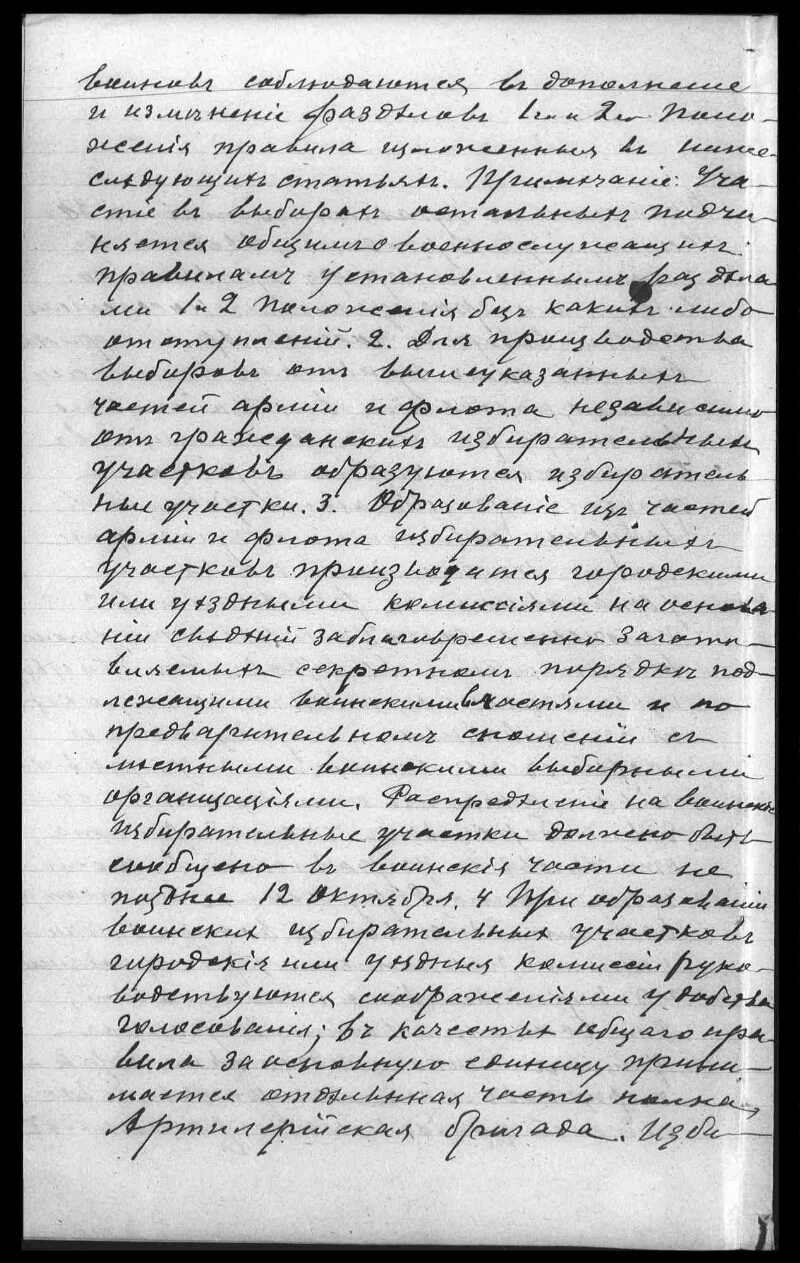 воиновъ соблюдаются въ дополнение
и измѣнение раздѣловъ 1го и 2го Поло-
жения правила изложенныя въ ниже-
слѣдующихъ статьяхъ. Примѣчание: Уча-
стie въ выборахъ остальныхъ подчи-
няется общимъ о военнослужащихъ
правиламъ установленнымъ раздѣла
ми 1 и 2 положения безъ какихъ либо
отступлений. 2. Для производства
выборовъ отъ вышеуказанныхъ
частей армiи и флота независимо
отъ гражданскихъ избирательныхъ
участковъ образуются избиратель
ные участки. 3. Образованiе изъ частей
армiи и флота избирательныхъ
участковъ производится городскими
или уѣздными комиссiями на основа
нiи свѣдѣнiй заблаговременно загото-
вляемыхъ секретномъ порядкѣ под-
лежащими воинскими властями и по
предварительномъ сношенiи съ
мѣстными воинскими выборными
организацiями. Распредѣленiе на воинскiе
избирательные участки должно быть
сообщено въ воинскiя части не
позднее 12 октября. 4 При образованiи
воинских избирательных участковъ
городскiя или уѣздныя комиссiи руко-
водствуются соображенiями удобства
голосованiя; въ качествѣ общаго пра-
вила за основную единицу прини-
мается отдѣльная часть полка,
Артилерiйская бригада. Изби-